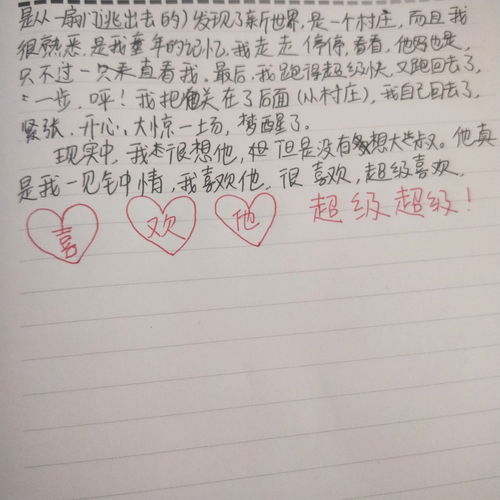 是从一扇门逃出去的)发现了新世界,是一个村庄,而且我
很熟悉,是我童年的记忆,我走走停停,看看,他也是,
只不过一只来直看我.最后,我跑得超级快,又跑回去了,
一步,呼!我把他关在了后面(从村庄),我自己回去了,
紧张、开心、大惊一场,梦醒了。
现实中,我很想他,但是没有想大叔。他真
是我一见钟情,我喜欢他,很喜欢,超级喜欢.
喜 欢 他 超级超级!